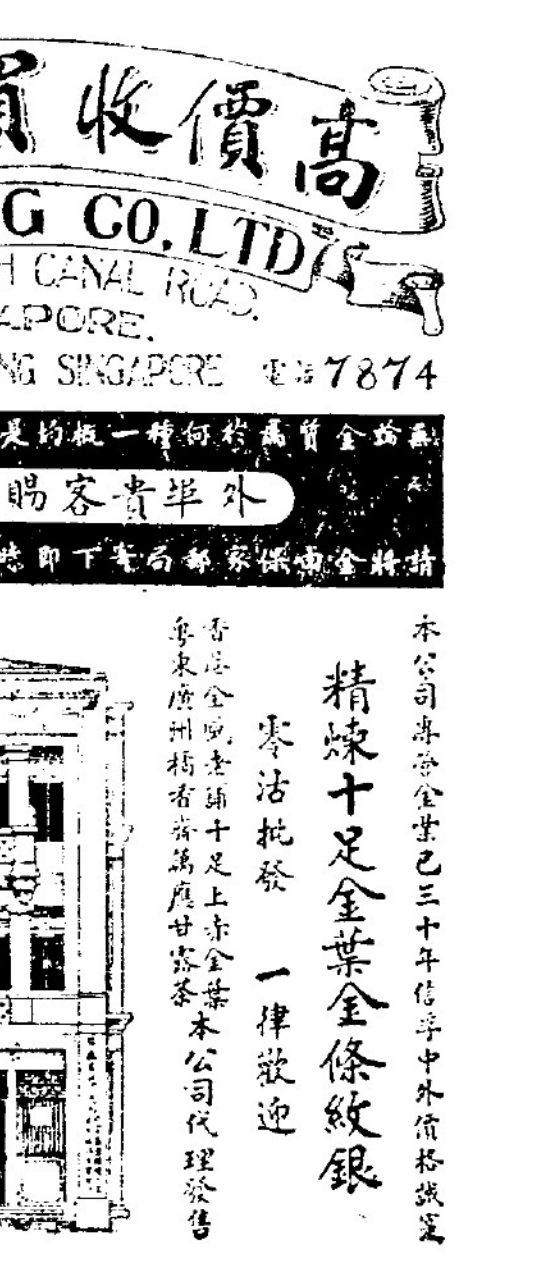 高價收買
G CO. LTD
H CANAL ROAD.
APORE.
NG SINGAPORE 電話 7874
無論金質為於何種一概均是
外埠貴客賜
請將金由保家郵局寄下即時
本公司專營金業已三十年信孚中外價格誠實
精煉十足金葉金條紋銀
零沽批發 一律歡迎
香港金成老鋪十足上赤金葉
粵東廣州橘香齋萬應甘露茶
本公司代理發售